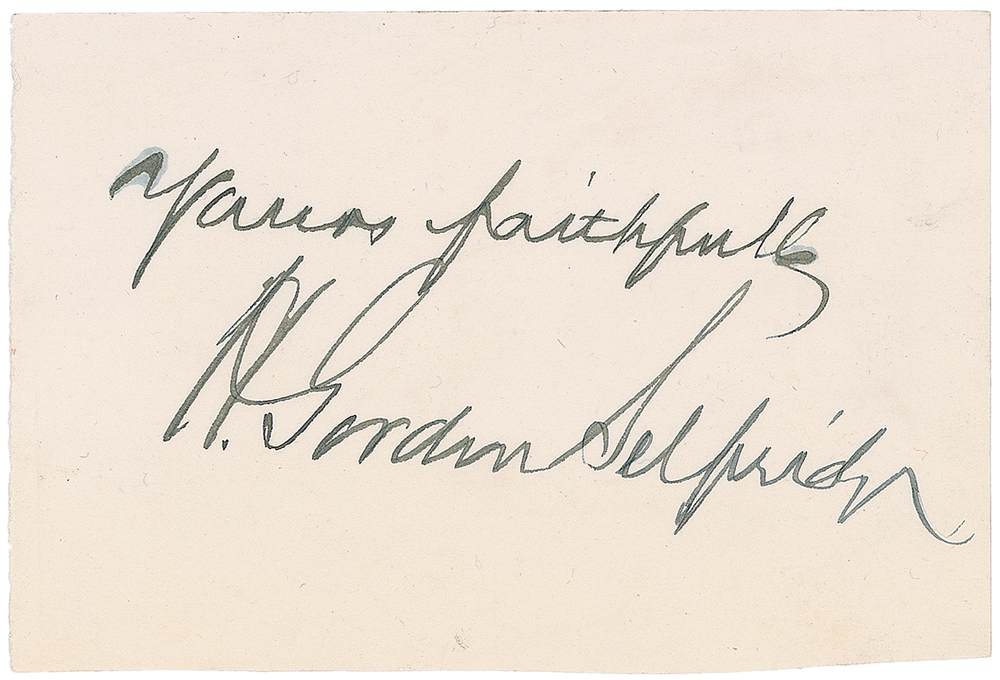 Yours faithfully
H. Gordon Selfridge